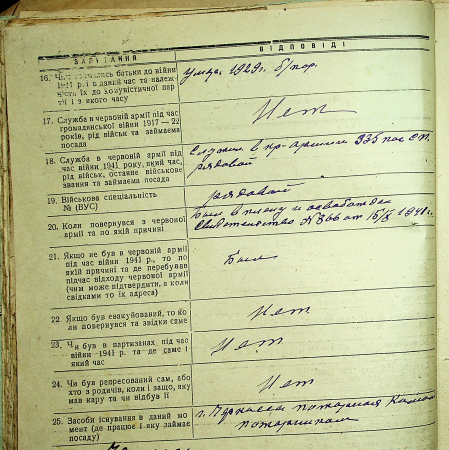 ЗАПИТАННЯ
ВІДПОВІДІ
батьки до війни
1941 р. і в даний час та належ-
ність їх до комуністичної пар-
тії і з якого часу
умер 1929 г. б/пар.
17. Служба в червоній армії під час
громадянської війни 1917—22
років, рід військ та займаема
посада
Нет
18. Служба в червоній армії під
час війни 1941 року, який час,
рід військ, останнє військове
звання та займаема посада
Служил в кр-армии 335
рядовой
19. Військова спеціальність
№ (ВУС)
рядовой
20. Коли повернувся з червоної
армії та по якій причині
был в плену и освобожден
свидетельство № 866 от 1941 г.
21. Якщо не був в червоній армії
під час війни 1941 р., то по
якій причині та де перебував
підчас відходу червоної армії
(чим може підтвердити, а коли
свідками то їх адреса)
Был
22. Якщо був евакуйований, то ко-
ли повернувся та звідки саме
Нет
23. Чи був в партизанах під час
війни 1941 р. та де саме і
який час
Нет
24. Чи був репресований сам, або
хто з родичів, коли і защо, яку
мав кару та чи відбув її
Нет
25. Засоби існування в даний мо-
мент (де працює і яку займає
посаду)
г. Черкассы пожарная
пожарником